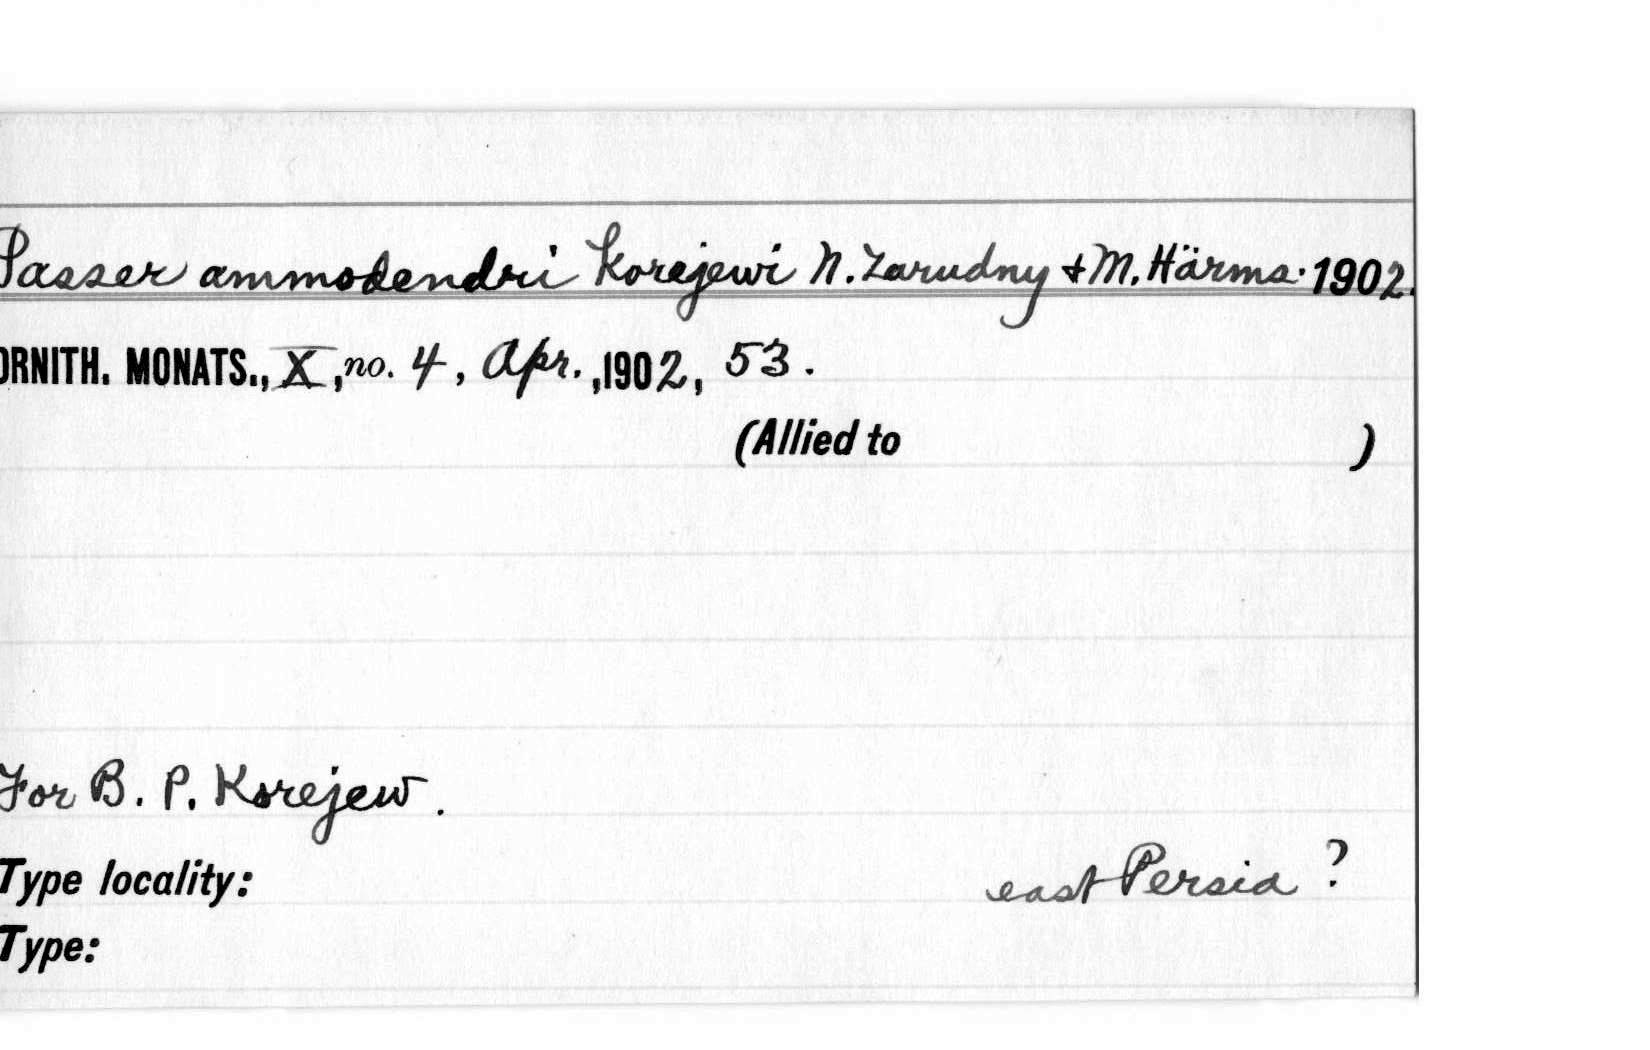 Passer ammodendri korejewi N. Zarudny & M. Härms. 1902.
ORNITH. MONATS., X, no. 4, Apr., 1902, 53.
(Allied to )
For B. P. Korejew.
Type locality: east Persia ?
Type: